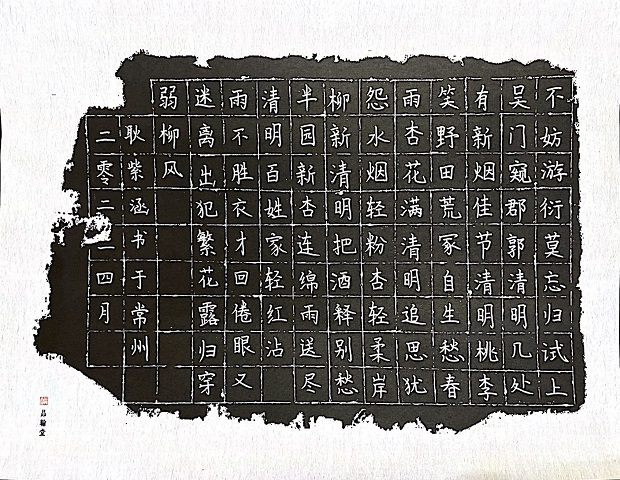 不妨游衍莫忘归试上
吴门窥郡郭清明几处
有新烟佳节清明桃李
笑野田荒冢自生愁春
雨杏花满清明追思犹
怨水烟轻粉杏轻柔岸
柳新清明把酒释别愁
半园新杏连绵雨送尽
清明百姓家轻红沾
雨不胜衣才回倦眼又
迷离出犯繁花露归穿
弱柳风
耿紫涵书于常州
二零二四月